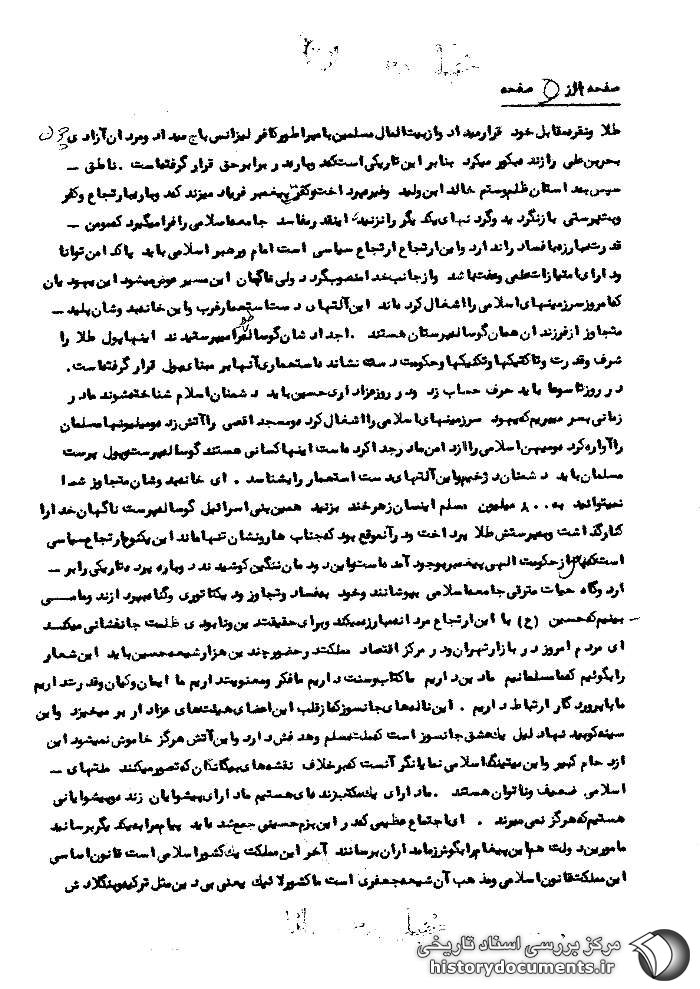 صفحه از صفحه
طلا ونقره مقابل خود قرار میداد واز بیت المال مسلمین بامپراطور کافر لیزانس باج میداد ومردان آزادی چون
بحربن علی را زنده بگور میکرد بنابراین تاریکی است که دوباره در برابر حق قرار گرفته است . ناطق ـ
سپس بعد استان ظلم وستم خالد ابن ولید وغیره پرداخت وگفت پیغمبر فریاد میزند که دوباره بارتجاع وکفر
وبت پرستی باز نگردید وگردنهای یکدیگر را نزنید اینقدر مفاسد جامعه اسلامی را فرا میگیرد که مومن ـ
قدرت مبارزه با فساد را ندارد واین ارتجاع ارتجاع سیاسی است امام ورهبر اسلامی باید پاکدامن توانا
ودارای امتیازات علمی وعفت باشد واز جانب خدا منصوب گردد ولی ناگهان این مسیر عوض میشود این یهودیان
که امروز سرزمینهای اسلامی را اشغال کرده اند این آلتهای دست استعمار غرب واین خاندید وشان پلید ـ
متجاوز از فرزندان همان گوساله پرستان هستند . اجدادشان گوساله را میپرستیدند اینها پول طلا را
شرف وقدرت وتاکتیکها وتکنیکها وحکومت دانسته نشانده استعماری آنها بر مبنای پول قرار گرفته است .
در روز تاسوعا باید حرف حساب زد ودر روز عزاداری حسین باید دشمنان اسلام شناخته شوند ما در
زمانی بسر میبریم که یهود سرزمینهای اسلامی را اشغال کرده ومسجد اقصی را آتش زده ومیلیونها مسلمان
را آواره کرده ومیهن اسلامی را ازدامن مادر جدا کرده است اینها کسانی هستند گوساله پرست وپول پرست
مسلمان باید دشمنان دژخیم واین آلتهای دست استعمار را بشناسد . ای خاندید وشان متجاوز شما
نمیتوانید به ۸۰۰ میلیون مسلم اینسان زهرخند بزنید همین بنی اسرائیل گوساله پرست ناگهان خدا را
کنار گذاشت وبه پرستش طلا پرداخت ودر آنموقع بود که جناب هارونشان تنها ماند این یکنوع ارتجاع سیاسی
است که از حکومت الهی پیغمبر بوجود آمده است واین دودمان ننگین کوشیدند دوباره پرده تاریکی را بر ـ
اردوگاه حیات مترقی جامعه اسلامی بپوشانند وخود بفساد وتجاوز ودیکتاتوری وگناه بپردازند وما مـی
بینیم که حسین (ع) با این ارتجاع مردانه مبارزه میکند وبرای حقیقت دین ونابودی ظلمت جانفشانی میکند ـ
ای مردم امروز در بازار تهران ودر مرکز اقتصاد مملکت در حضور چندین هزار شیعه حسین باید این شعار
را بگوئیم که ما مسلمانیم ما دین داریم ما کتاب وسنت داریم ما فکر ومعنویت داریم ما ایمان وکیان وقدرت داریم
ما با پروردگار ارتباط داریم . این ناله های جانسوز که از قلب این اعضای هیئت های عزادار بر میخیزد واین
سینه کوبیدنها دلیل یک عشق جانسوز است که ملت مسلم وهدفش دارد واین آتش هرگز خاموش نمیشود این
ازدحام کبیر واین میتینگ اسلامی نمایانگر آنست که برخلاف نقشه های بیگانگان که تصور میکنند ملتهای ـ
اسلامی ضعیف وناتوان هستند . ما دارای یک مکتب زنده ای هستیم ما دارای پیشوایان زنده وپیشوایانی
هستیم که هرگز نمی میرند . ای اجتماع عظیمی که در این بزم حسینی جمع شده اید پیام مرا به یکدیگر برسانید
مامورین دولت هم این پیغام را بگوش زمامداران برسانند آخر این مملکت یک کشور اسلامی است قانون اساسی
این مملکت قانون اسلامی ومذهب آن شیعه جعفری است ما کشور لائیک یعنی بی دین مثل ترکیه وبنگلادش
مرکز بررسی اسناد تاریخی
historydocuments.ir